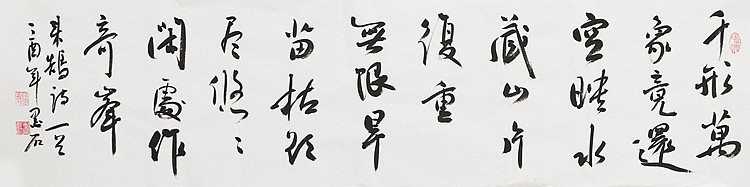 千形萬
象竟還
空映水
藏山片
復重
無限旱
苗枯欲
尽悠々
閑處作
奇峯
来鵠詩一首
丁酉年墨石